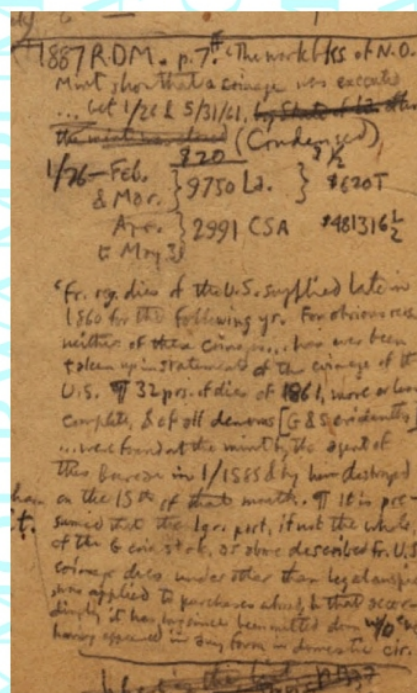 1887 R.D.M. p.7. "The work bks of N.O.
Mint show that a coinage was executed
... bet 1/26 & 5/31/61,
the mint was closed (Condensed)
$20 $ 1/2
1/26 – Feb. } 9750 La. } $620T
& Mar.
Apr. } 2991 CSA $481316 1/2
to May 31
"Fr. reg. dies of the U.S. supplied late in
1860 for the following yr. For obvious reas
neither of these coinages... has ever been
taken up in statements of the coinage of the
U.S. ¶ 32 prs. of dies of 1861, more or less
complete, & of all denoms [G & S evidently]
... were found at the mint by the agent of
this Bureau in 1/1885 & by him destroyed
on the 15th of that month. ¶ It is pre-
sumed that the lgr. part, if not the whole
of the G coin struck, as above described fr. U.S.
coinage dies, under other than legal auspi
was applied to purchases abroad, & that accor
dingly it has long since been melted down w/o
having appeared in any form in domestic cir.